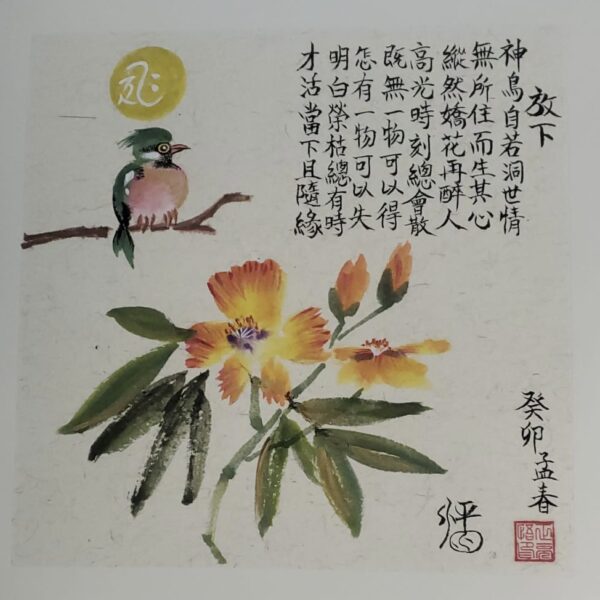 放下
神鳥自若洞世情
無所住而生其心
縱然嬌花再醉人
高光時刻總會散
既無一物可以得
怎有一物可以失
明白榮枯總有時
才活當下且隨緣
癸卯孟春